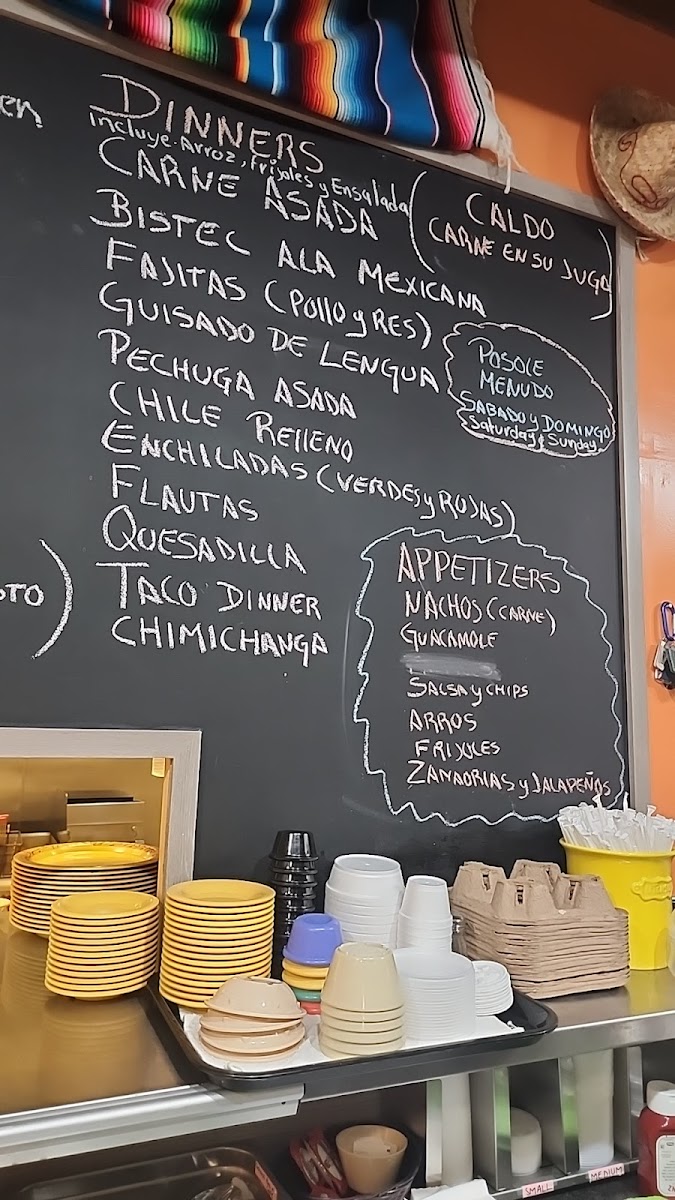 en
DINNERS
Incluye Arroz, frijoles y Ensalada
CARNE ASADA
BISTEC ALA MEXICANA
FAJITAS (Pollo y RES)
GUISADO DE LENGUA
PECHUGA ASADA
CHILE Relleno
ENCHILADAS (VERDES y ROJAS)
FLAUTAS
QUESADILLA
TACO DINNER
CHIMICHANGA
STO)
(CALDO
CARNE EN SU JUGO)
POSOLE
MENUDO
SABADO y DOMINGO
Saturday & Sunday
APPETIZERS
NACHOS (CARNE)
GUACAMOLE
SALSA y CHIPS
ARROS
FRIJOLES
ZANAORIAS y JALAPEÑOS
SMALL
MEDIUM